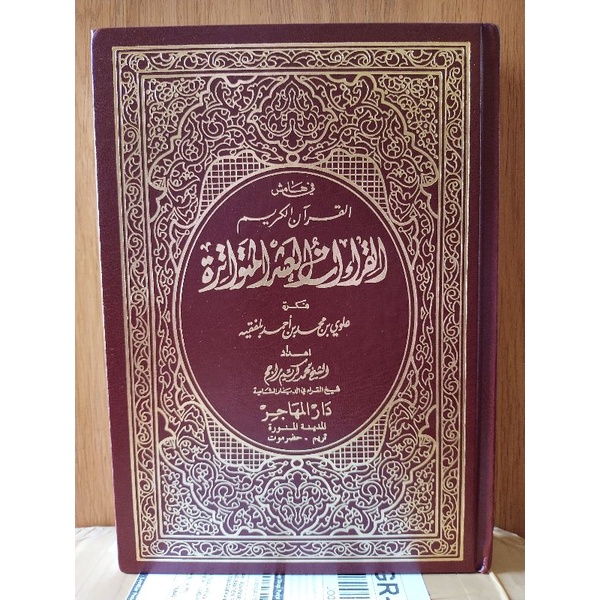 في هامش
القرآن الكريم
القراءات العشر المتواترة
فكرة
علوي بن محمد بن أحمد بلفقيه
اعداد
الشيخ محمد كريم راجح
شيخ القراء في الديار الشامية
دار المهاجر
المدينة المنورة
تريم - حضرموت
GR-